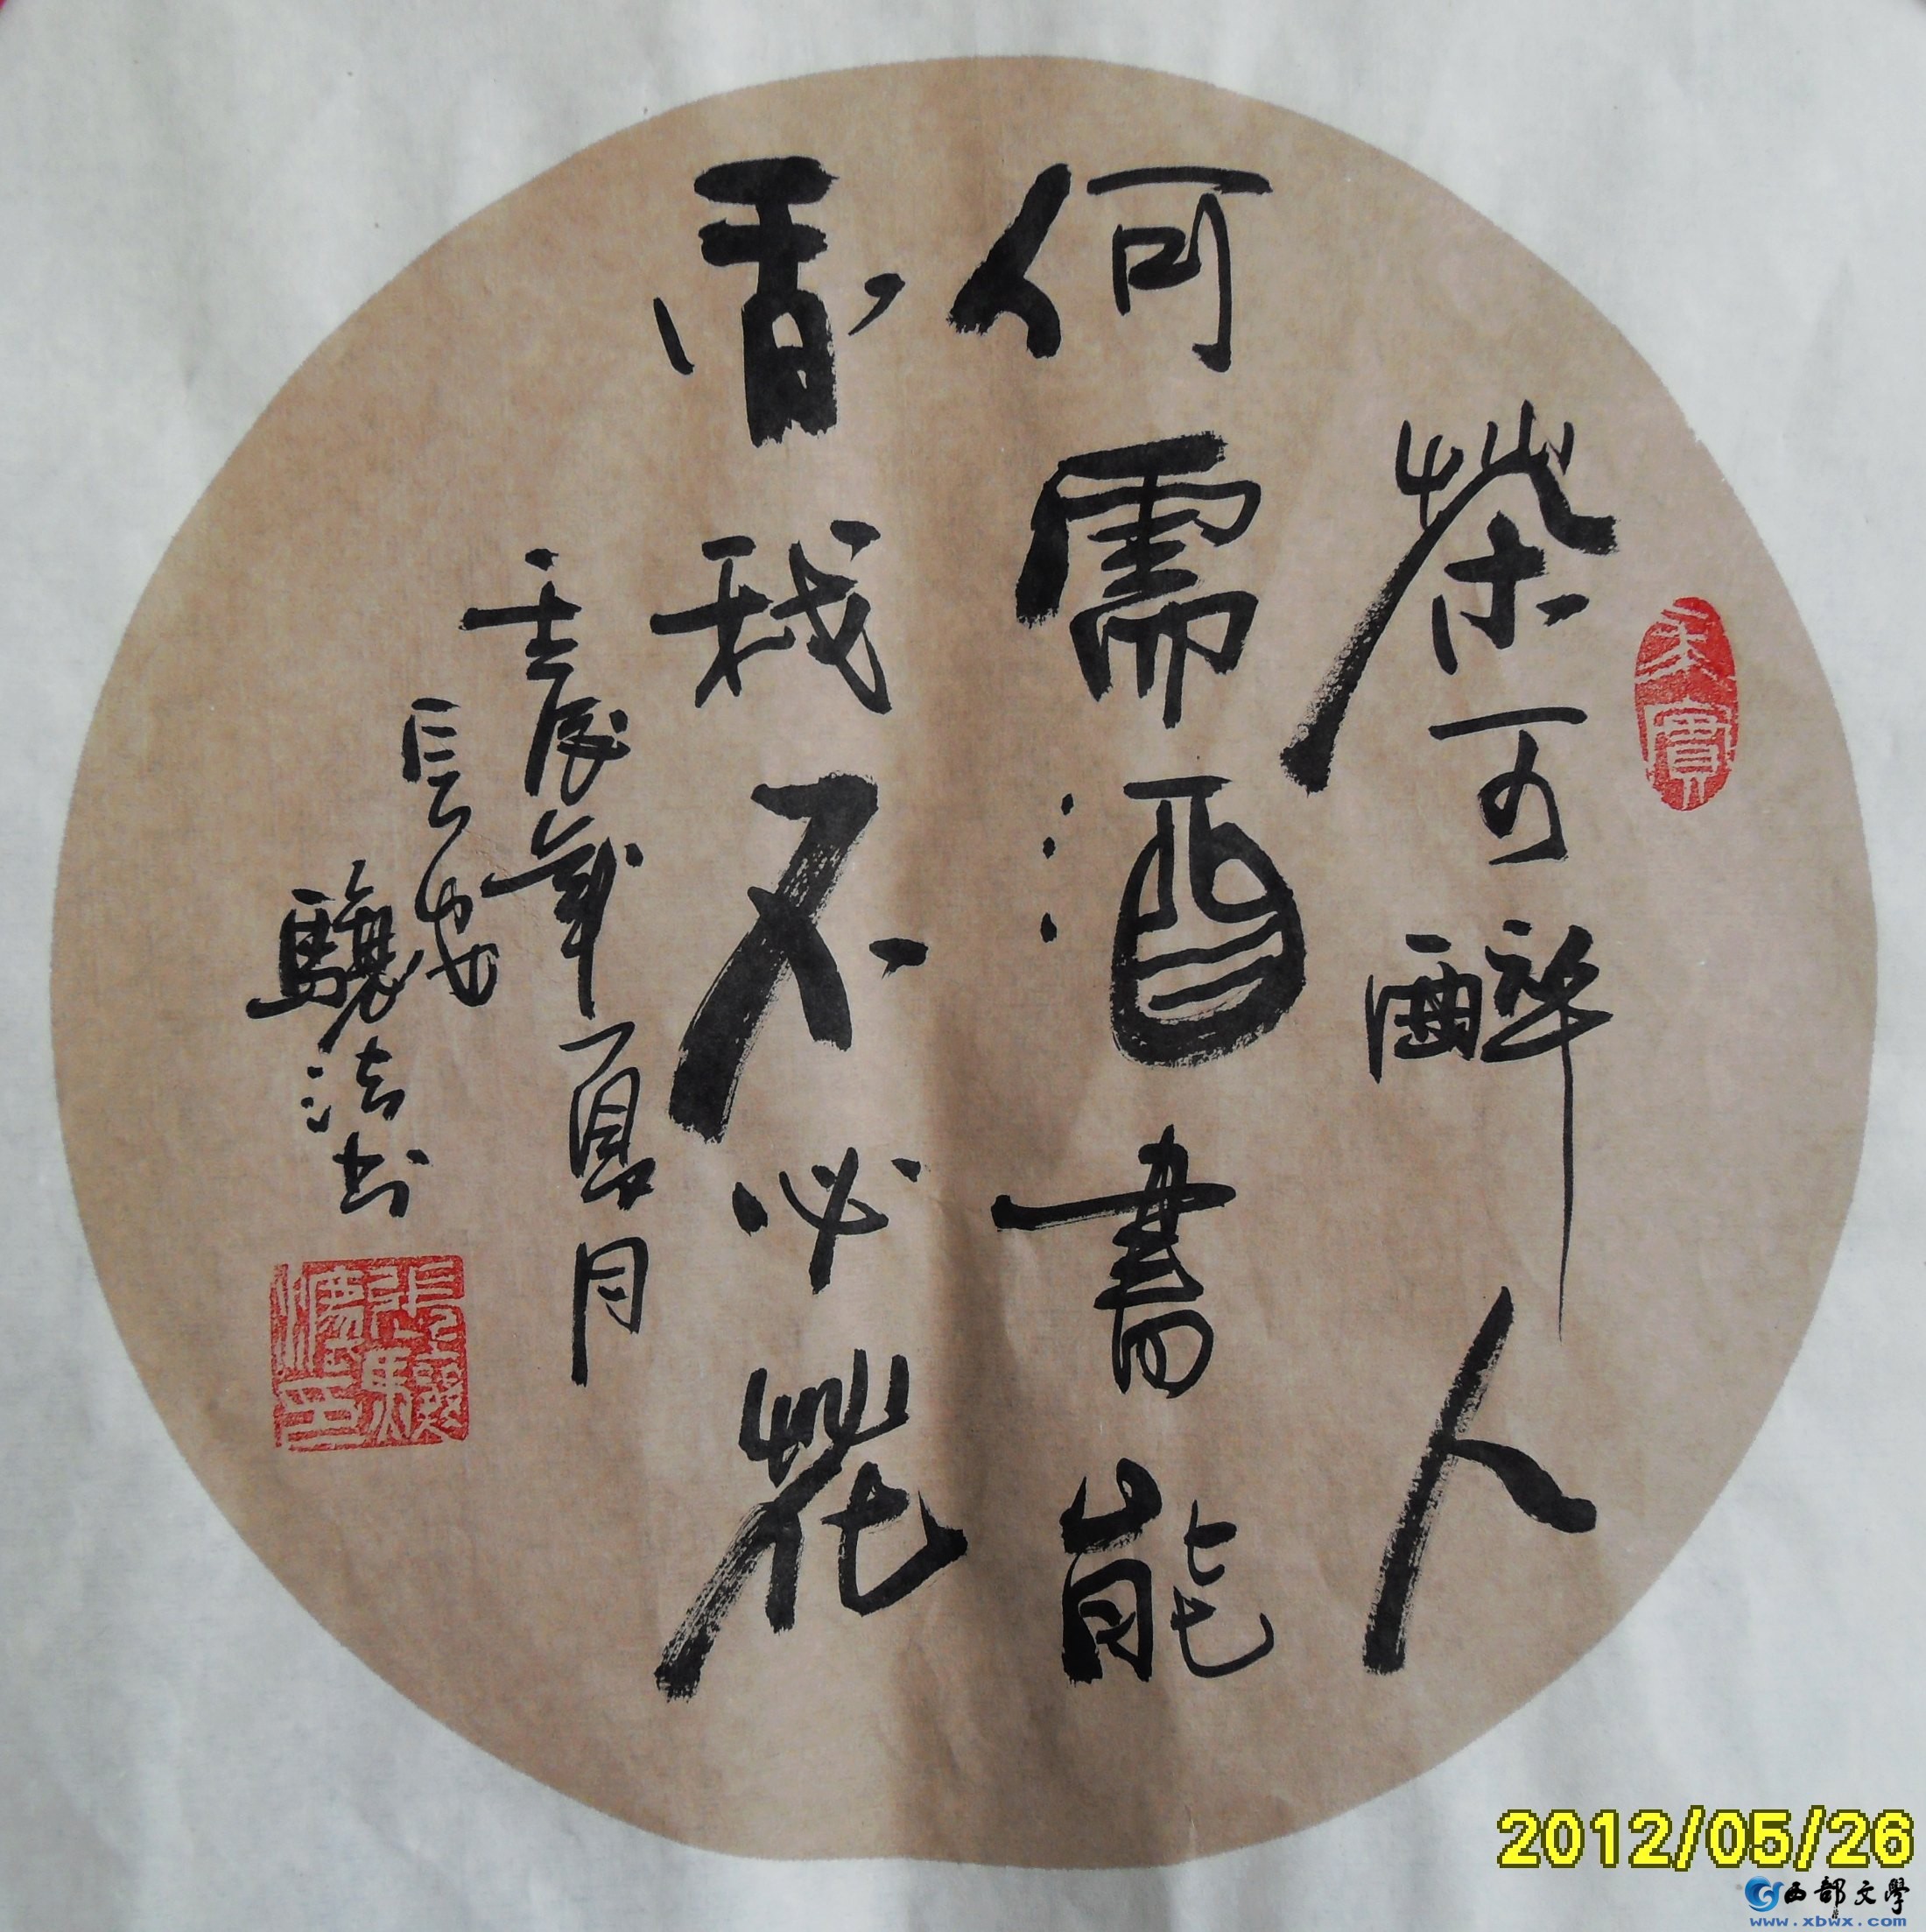 茶可醉人
何需酒書能
香我不必花
壬辰年夏月
長安
驤法書
張驤法印
2012/05/26
西部文學
www.xbwx.com